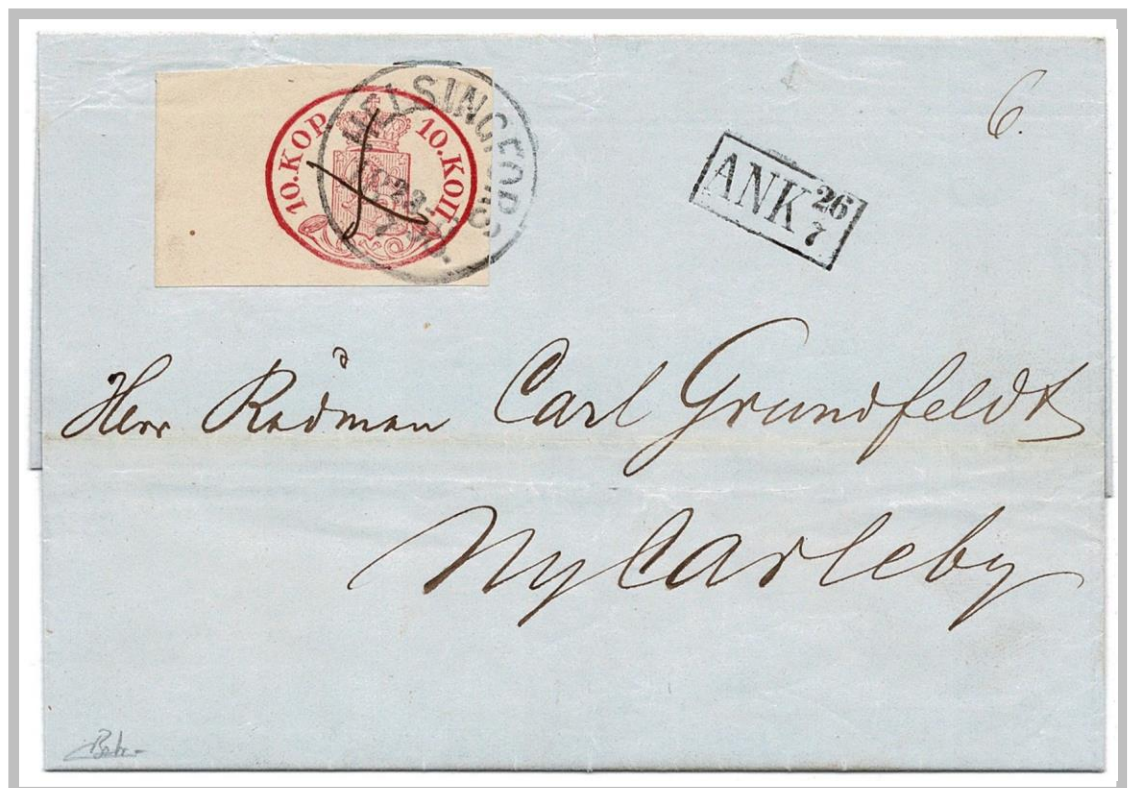 6.
10.KOP 10.КОП.
HELSINGFORS
ANK 26/7
Herr Rådman Carl Grundfeldt
NyCarleby